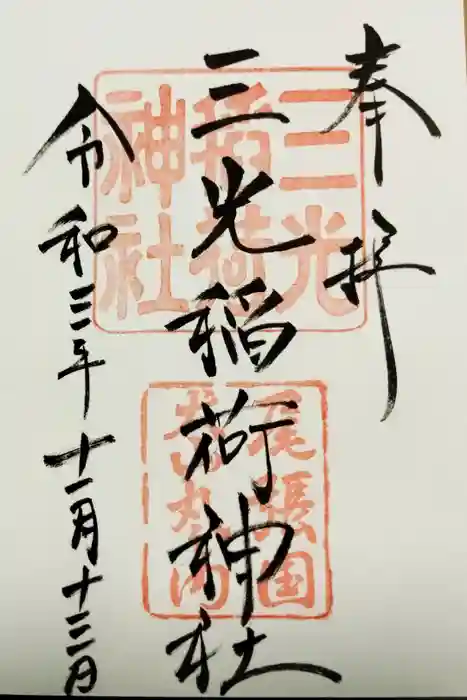 奉拝
三光稲荷神社
令和三年十一月十三日
三光
稲荷
神社
尾張国
犬山丸内